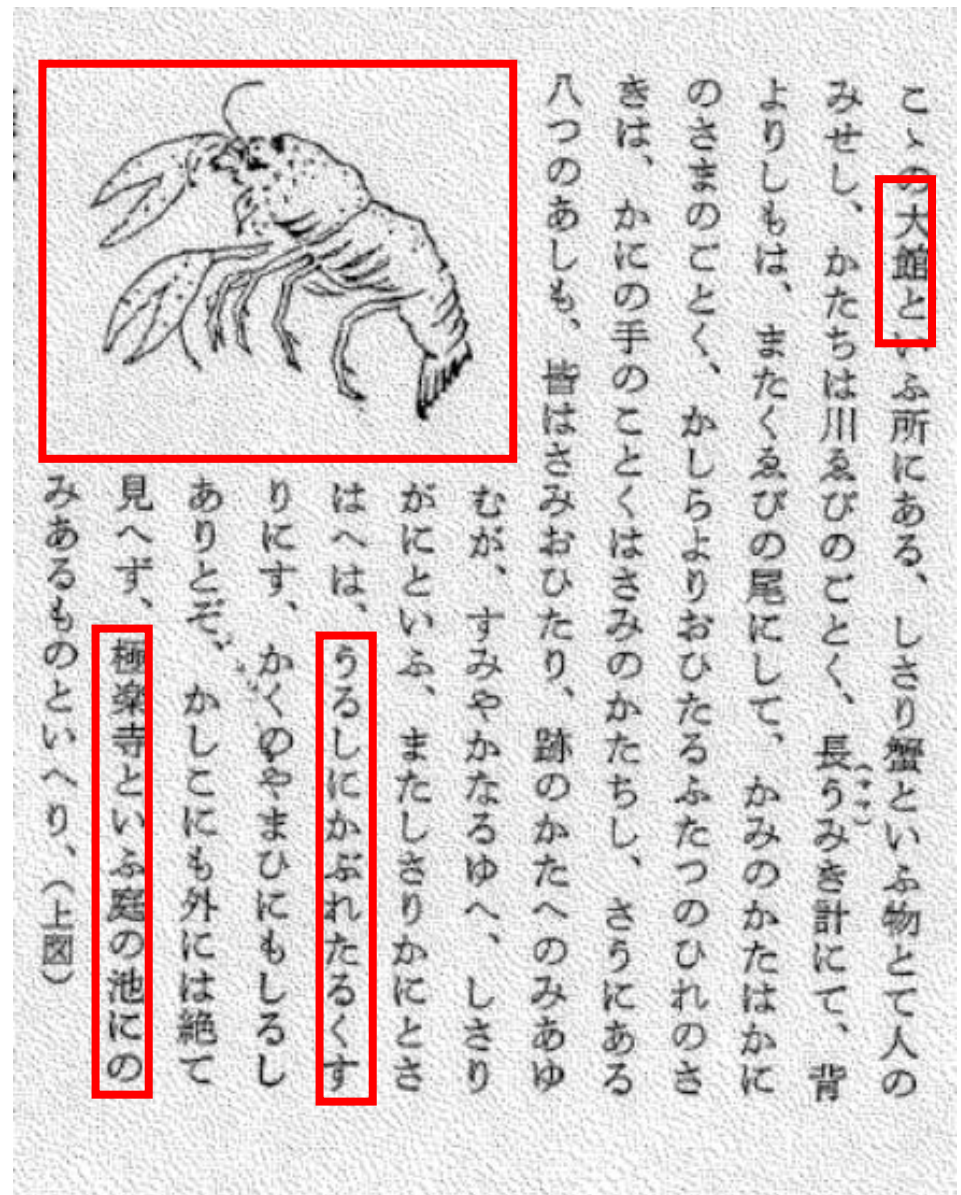 こゝの大館といふ所にある、しさり蟹といふ物とて人の
みせし、かたちは川ゑびのごとく、長うみき計にて、背
(ママ)
よりしもは、またくゑびの尾にして、かみのかたはかに
のさまのことく、かしらよりおひたるふたつのひれのさ
きは、かにの手のことくはさみのかたちし、さうにある
八つのあしも、皆はさみおひたり、跡のかたへのみあゆ
むが、すみやかなるゆへ、しさり
がにといふ、またしさりかにとさ
はへは、うるしにかぶれたるくす
りにす、かくのやまひにもしるし
ありとぞ、かしこにも外には絶て
見へず、極楽寺といふ庭の池にの
みあるものといへり、(上図)